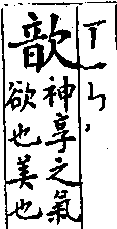 歆
ㄒㄧㄣ
神享之氣
欲也美也